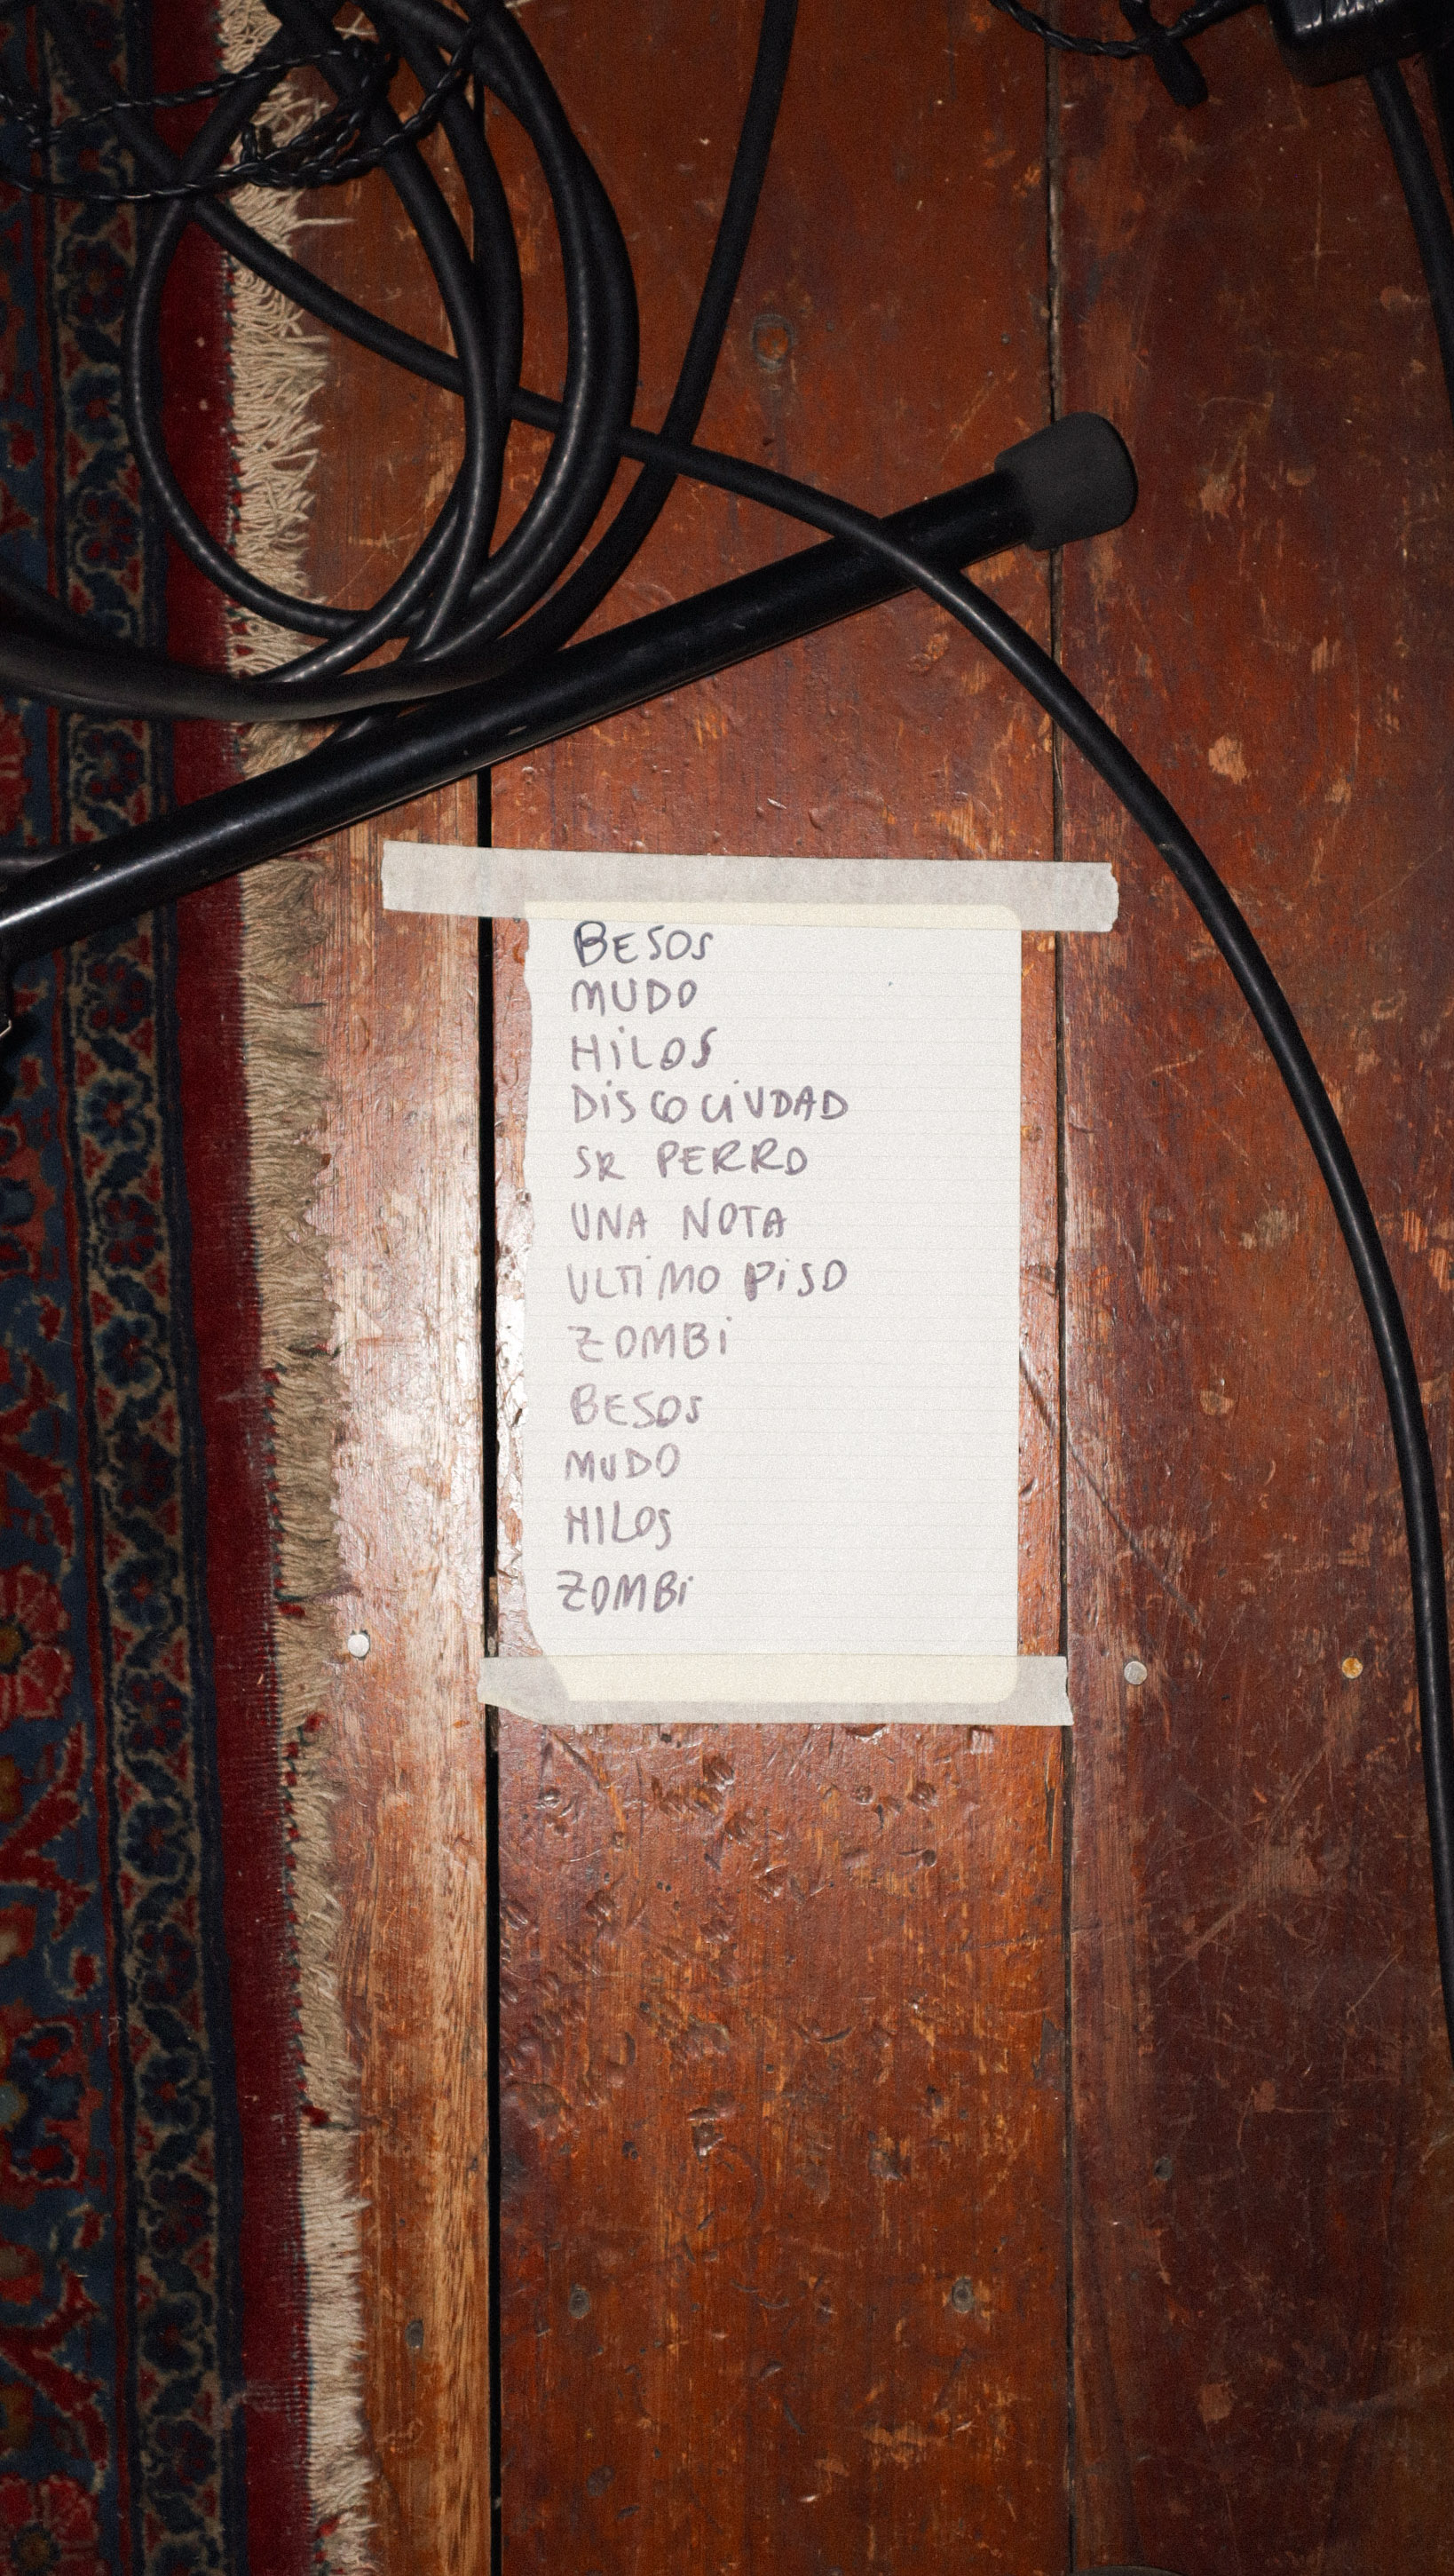 BESOS
MUDO
HiLOS
DiSCOCiUDAD
SR PERRO
UNA NOTA
ULTiMO PiSO
ZOMBi
BESOS
MUDO
HILOS
ZOMBi